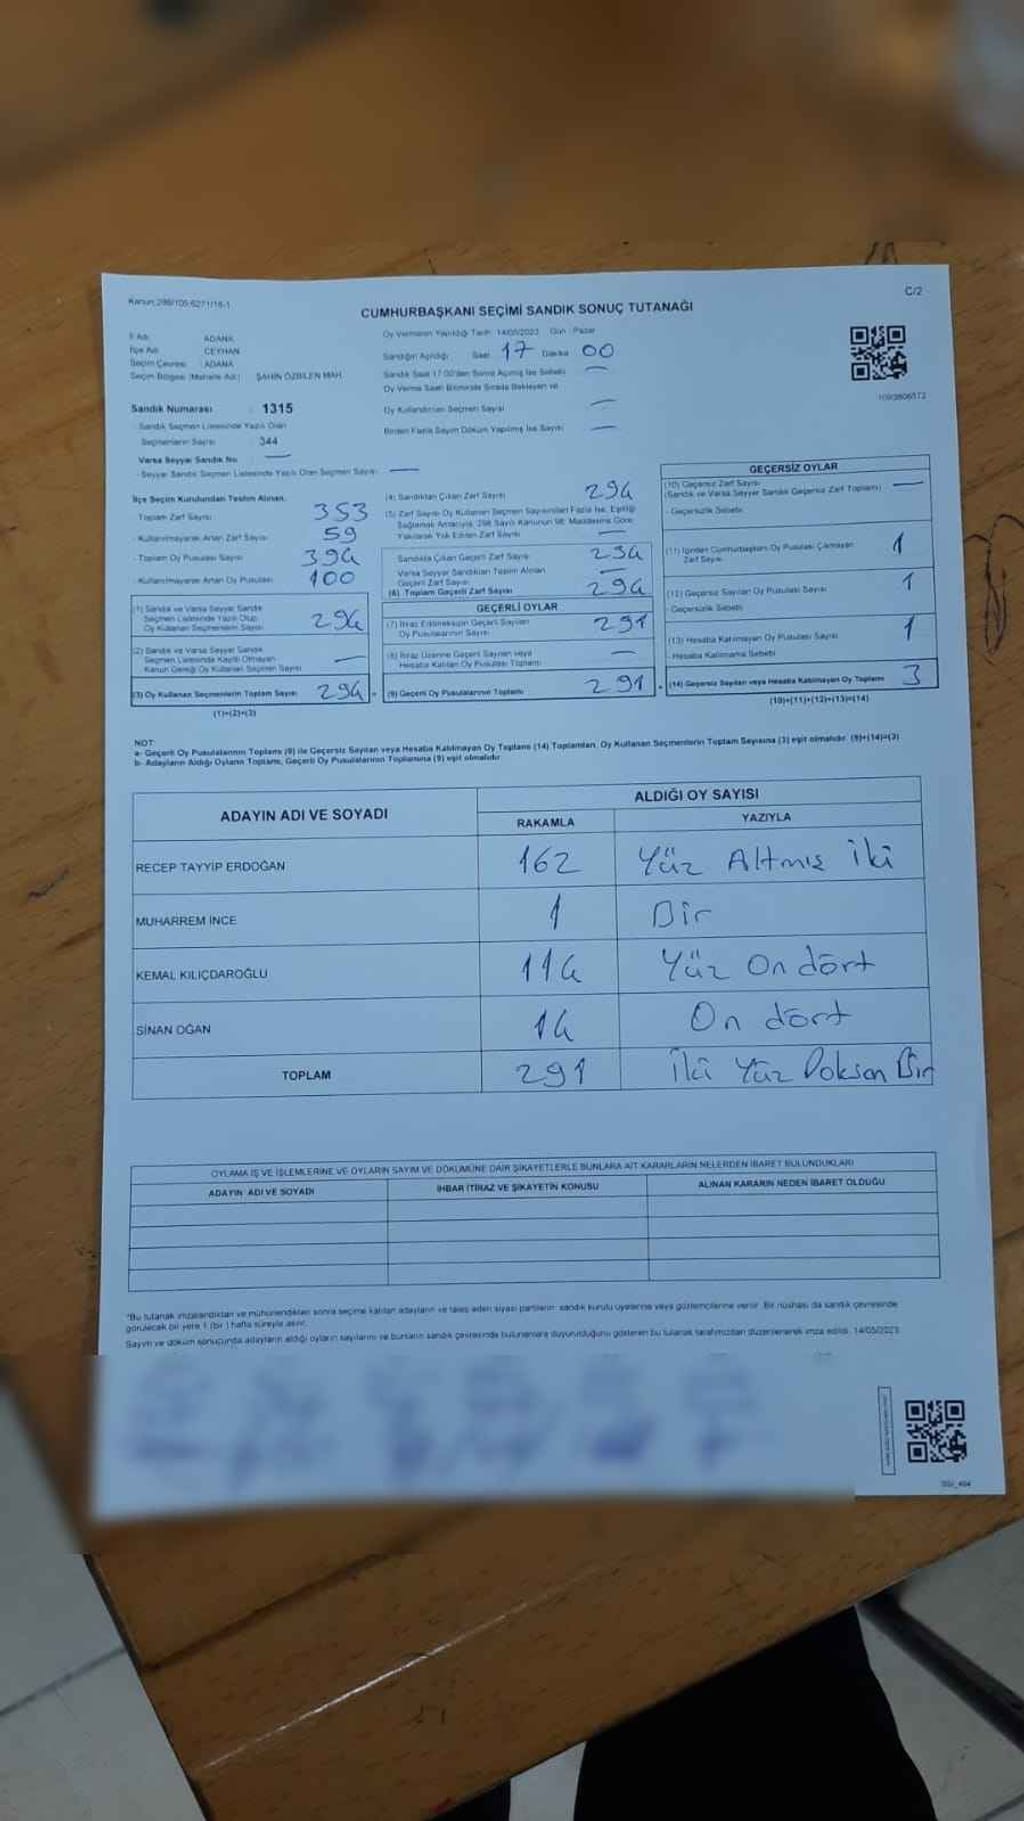 Kanun:298/105-6271/16-1
C/2
CUMHURBAŞKANI SEÇİMİ SANDIK SONUÇ TUTANAĞI
İl Adı : ADANA
İlçe Adı : CEYHAN
Seçim Çevresi : ADANA
Seçim Bölgesi (Mahalle Adı) : ŞAHİN ÖZBİLEN MAH.
Oy Vermenin Yapıldığı Tarih: 14/05/2023 Gün : Pazar
Sandığın Açıldığı Saat 17 Dakika 00
Sandık Saat 17:00'den Sonra Açılmış İse Sebebi —
Oy Verme Saati Bitiminde Sırada Bekleyen ve
Oy Kullandırılan Seçmen Sayısı —
Birden Fazla Sayım Döküm Yapılmış İse Sayısı —
Sandık Numarası : 1315
- Sandık Seçmen Listesinde Yazılı Olan
Seçmenlerin Sayısı : 344
Varsa Seyyar Sandık No : —
- Seyyar Sandık Seçmen Listesinde Yazılı Olan Seçmen Sayısı —
İlçe Seçim Kurulundan Teslim Alınan;
Toplam Zarf Sayısı 353
- Kullanılmayarak Artan Zarf Sayısı 59
- Toplam Oy Pusulası Sayısı 394
- Kullanılmayarak Artan Oy Pusulası 100
(1) Sandık ve Varsa Seyyar Sandık
Seçmen Listesinde Yazılı Olup
Oy Kullanan Seçmenlerin Sayısı 294
(2) Sandık ve Varsa Seyyar Sandık
Seçmen Listesinde Kayıtlı Olmayan
Kanun Gereği Oy Kullanan Seçmen Sayısı —
(3) Oy Kullanan Seçmenlerin Toplam Sayısı 294
(1)+(2)=(3)
(4) Sandıktan Çıkan Zarf Sayısı 294
(5) Zarf Sayısı Oy Kullanan Seçmen Sayısından Fazla İse, Eşitliği
Sağlamak Amacıyla, 298 Sayılı Kanunun 98. Maddesine Göre
Yakılarak Yok Edilen Zarf Sayısı —
Sandıkta Çıkan Geçerli Zarf Sayısı 294
Varsa Seyyar Sandıktan Teslim Alınan
Geçerli Zarf Sayısı —
(6) Toplam Geçerli Zarf Sayısı 294
GEÇERLİ OYLAR
(7) İtiraz Edilmeksizin Geçerli Sayılan
Oy Pusulalarının Sayısı 291
(8) İtiraz Üzerine Geçerli Sayılan veya
Hesaba Katılan Oy Pusulası Toplamı —
(9) Geçerli Oy Pusulalarının Toplamı 291
GEÇERSİZ OYLAR
(10) Geçersiz Zarf Sayısı —
(Sandık ve Varsa Seyyar Sandık Geçersiz Zarf Toplamı)
- Geçersizlik Sebebi:
(11) İçinden Cumhurbaşkanı Oy Pusulası Çıkmayan
Zarf Sayısı 1
(12) Geçersiz Sayılan Oy Pusulası Sayısı 1
- Geçersizlik Sebebi
(13) Hesaba Katılmayan Oy Pusulası Sayısı 1
- Hesaba Katılmama Sebebi
(14) Geçersiz Sayılan veya Hesaba Katılmayan Oy Toplamı 3
(10)+(11)+(12)+(13)=(14)
NOT:
a- Geçerli Oy Pusulalarının Toplamı (9) ile Geçersiz Sayılan veya Hesaba Katılmayan Oy Toplamı (14) Toplamları, Oy Kullanan Seçmenlerin Toplam Sayısına (3) eşit olmalıdır. (9)+(14)=(3)
b- Adayların Aldığı Oyların Toplamı, Geçerli Oy Pusulalarının Toplamına (9) eşit olmalıdır
ADAYIN ADI VE SOYADI
ALDIĞI OY SAYISI
RAKAMLA YAZIYLA
RECEP TAYYİP ERDOĞAN 162 Yüz Altmış iki
MUHARREM İNCE 1 Bir
KEMAL KILIÇDAROĞLU 114 Yüz On dört
SİNAN OĞAN 14 On dört
TOPLAM 291 İki Yüz Doksan Bir
OYLAMA İŞ VE İŞLEMLERİNE VE OYLARIN SAYIM VE DÖKÜMÜNE DAİR ŞİKAYETLERLE BUNLARA AİT KARARLARIN NELERDEN İBARET BULUNDUKLARI
ADAYIN ADI VE SOYADI
İHBAR İTİRAZ VE ŞİKAYETİN KONUSU
ALINAN KARARIN NEDEN İBARET OLDUĞU
*Bu tutanak imzalandıktan ve mühürlendikten sonra seçime katılan adayların ve talep eden siyasi partilerin sandık kurulu üyelerine veya gözlemcilerine verilir. Bir nüshası da sandık çevresinde
görülecek bir yere 1 (bir) hafta süreyle asılır.
Sayım ve döküm sonucunda adayların aldığı oyların sayılarını ve bunların sandık çevresinde bulunanlara duyurulduğunu gösteren bu tutanak tarafımızdan düzenlenerek imza edildi. 14/05/2023